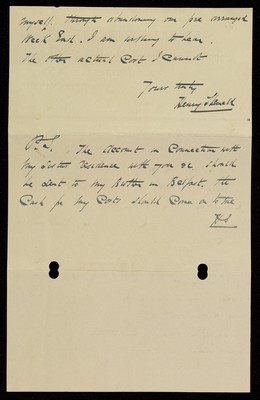 myself. through abandoning our pre arranged
Week End. I am writing to him.
The other actual Cost I cannot
Yours truly
Henry
P.S. The account in Connection with
my Sisters residence with you &c should
be sent to my Brother in Belfast. The
Cash for my Costs should Come on to me,
HS